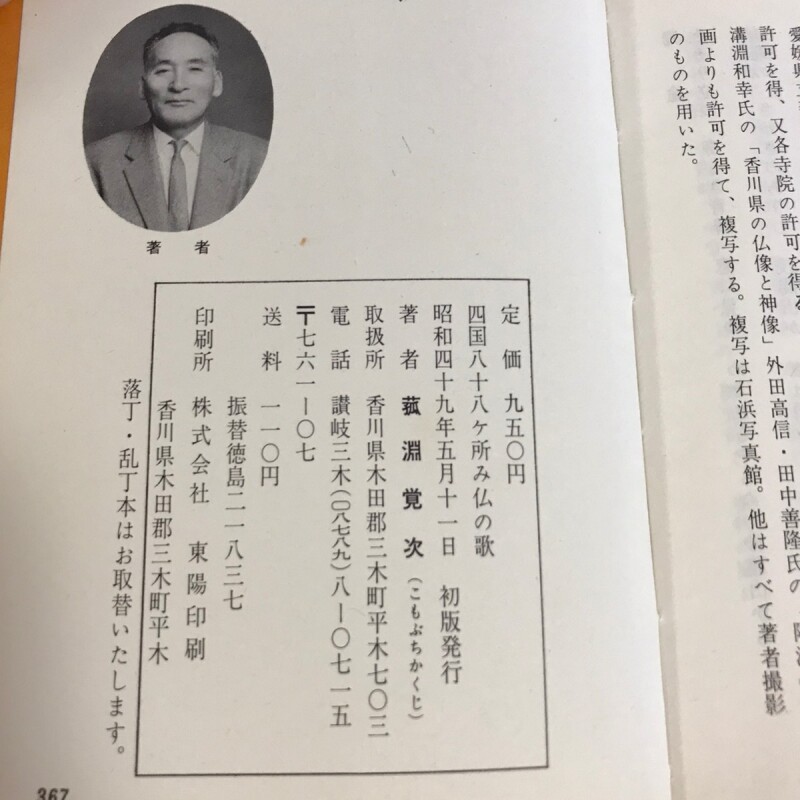 許可を得、又各寺院の許可を得る
溝淵和幸氏の「香川県の仏像と神像」外田高信・田中善隆氏の
画よりも許可を得て、複写する。複写は石浜写真館。他はすべて著者撮影
のものを用いた。
著者
定価 九五〇円
四国八十八ヶ所み仏の歌
昭和四十九年五月十一日 初版発行
著者 菰淵覚次(こもぶちかくじ)
取扱所 香川県木田郡三木町平木七〇三
電話 讃岐三木(〇八七八九)八ー〇七一五
〒七六一ー〇七
送料 一一〇円
振替徳島二一八三七
印刷所 株式会社 東陽印刷
香川県木田郡三木町平木
落丁・乱丁本はお取替いたします。
367